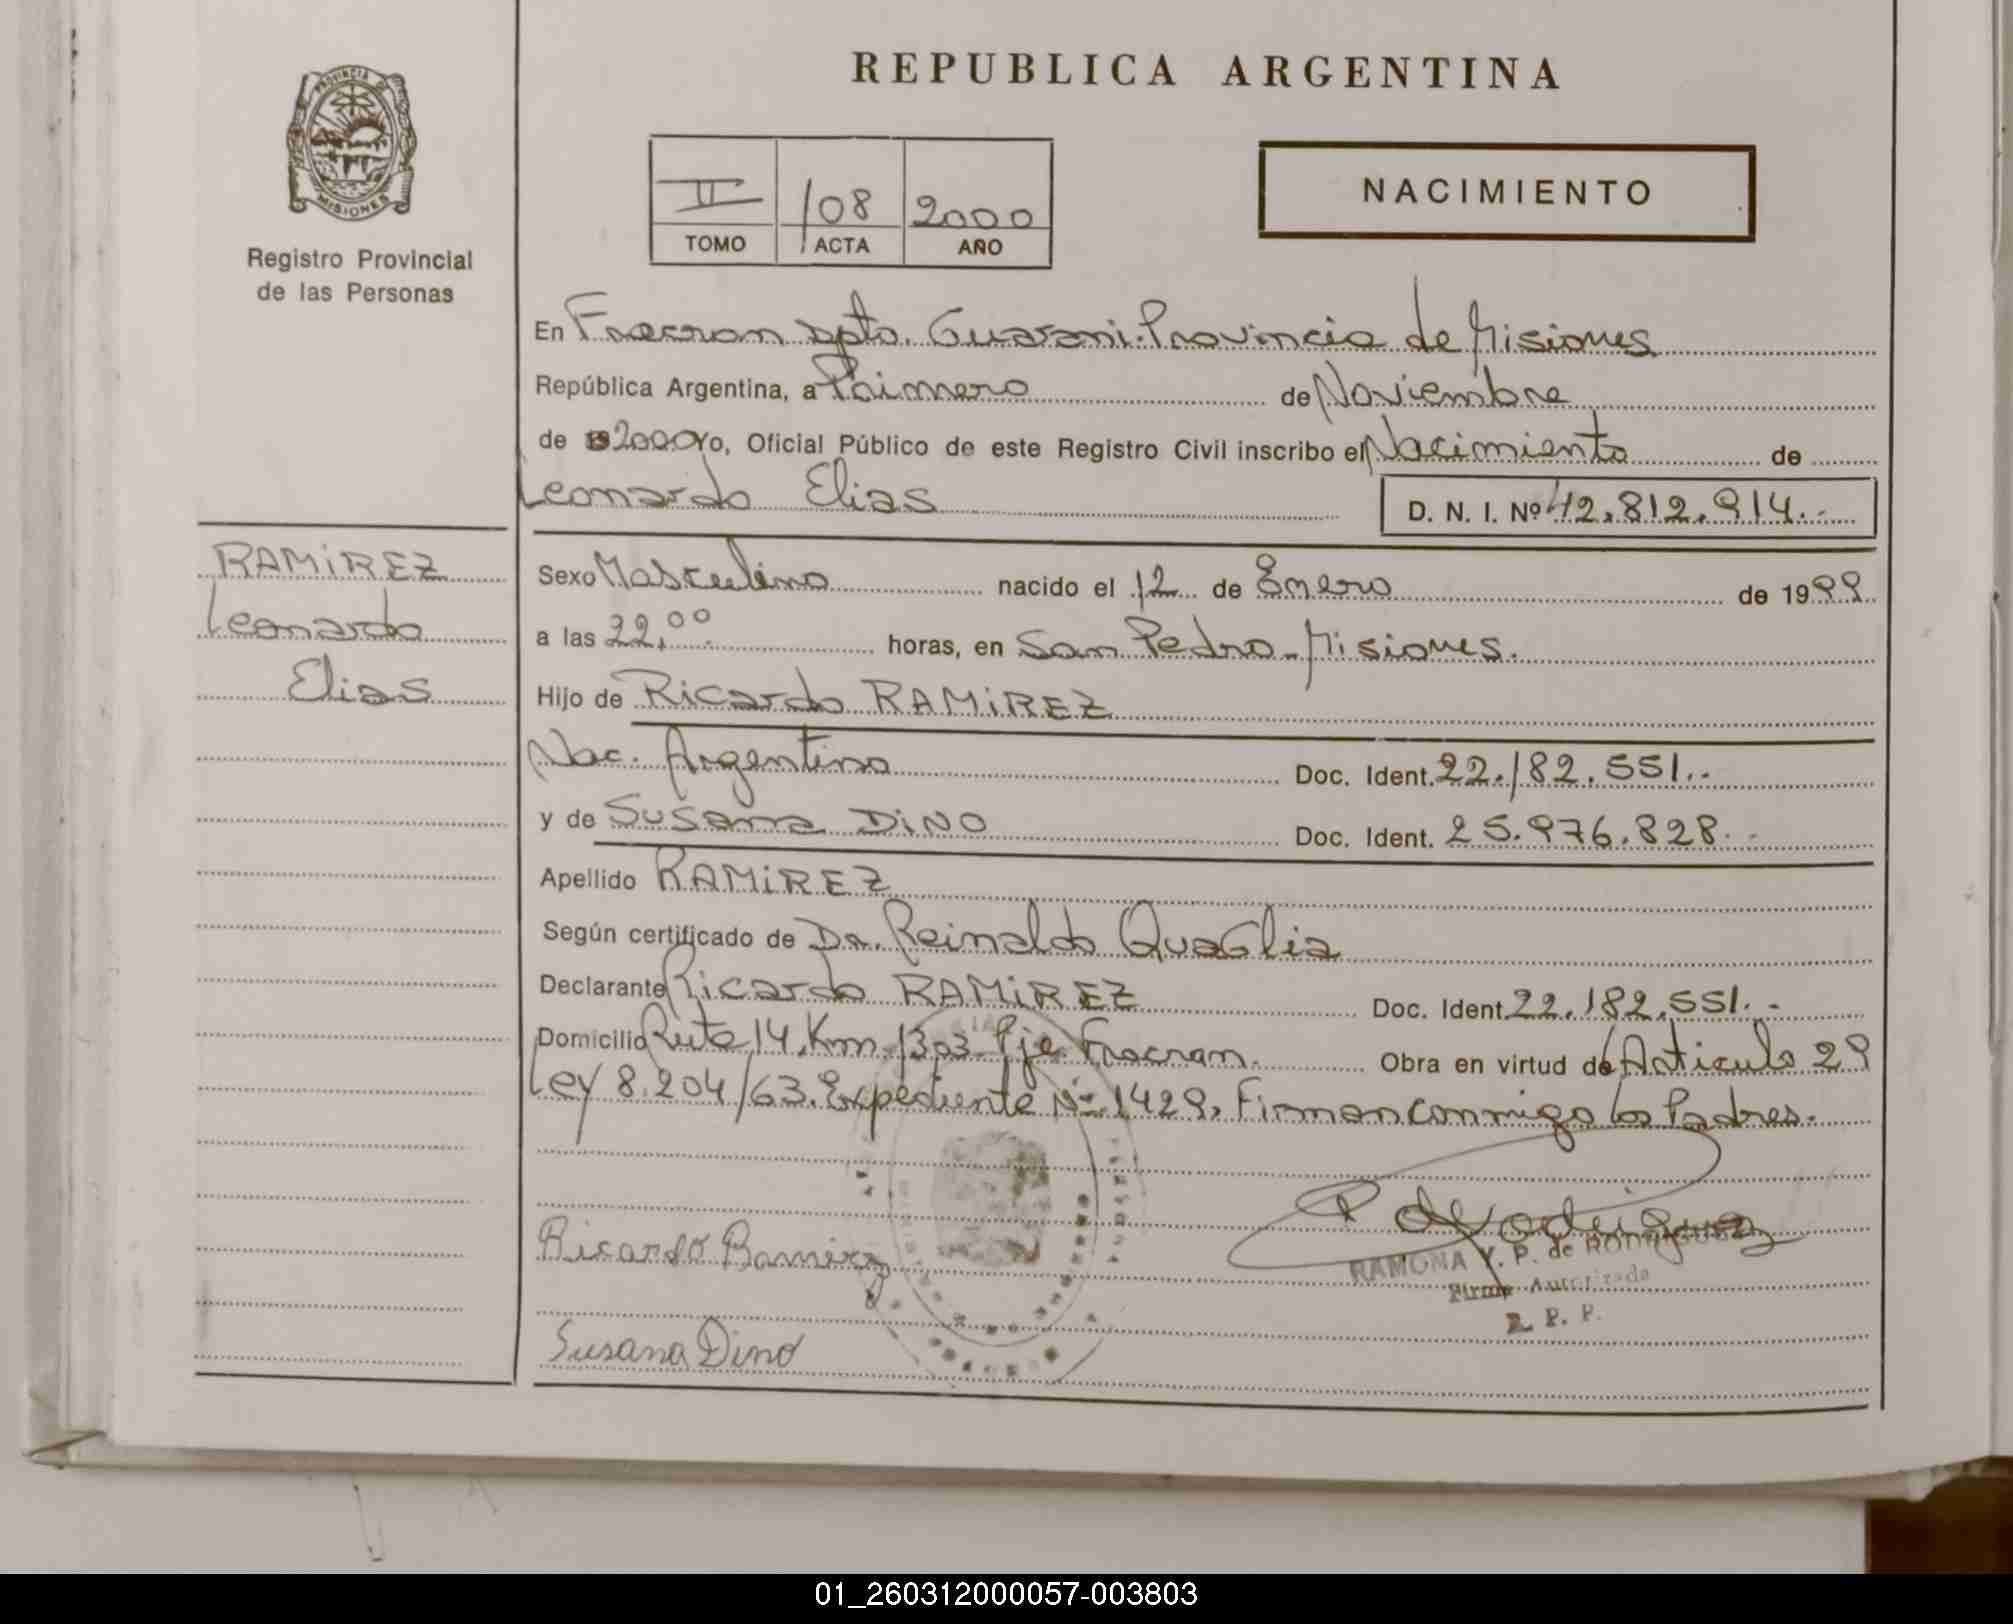 REPUBLICA ARGENTINA
PROVINCIA DE MISIONES
Registro Provincial
de las Personas
II 108 2000
TOMO ACTA AÑO
NACIMIENTO
En Fracran Dpto. Guarani. Provincia de Misiones
República Argentina, a Primero de Noviembre
de 2000 Yo, Oficial Público de este Registro Civil inscribo el Nacimiento de
Leonardo Elias D. N. I. Nº 42.812.914.-
RAMIREZ
Leonardo
Elias
Sexo Masculino nacido el 12 de Enero de 1999
a las 22,00 horas, en San Pedro-Misiones.
Hijo de Ricardo RAMIREZ
Nac. Argentino Doc. Ident. 22.182.551.-
y de Susana DINO Doc. Ident. 25.976.828.-
Apellido RAMIREZ
Según certificado de Dr. Reinaldo Quaglia
Declarante Ricardo RAMIREZ Doc. Ident. 22.182.551.-
Domicilio Ruta 14, Km. 1303 Pje. Fracran. Obra en virtud de Articulo 29
Ley 8.204/63. Expediente Nº 1429, Firman conmigo los Padres.
Ricardo Ramirez
Susana Dino
RAMONA Y. P. de RODRIGUEZ
Firma Autorizada
R. P. P.
01_260312000057-003803